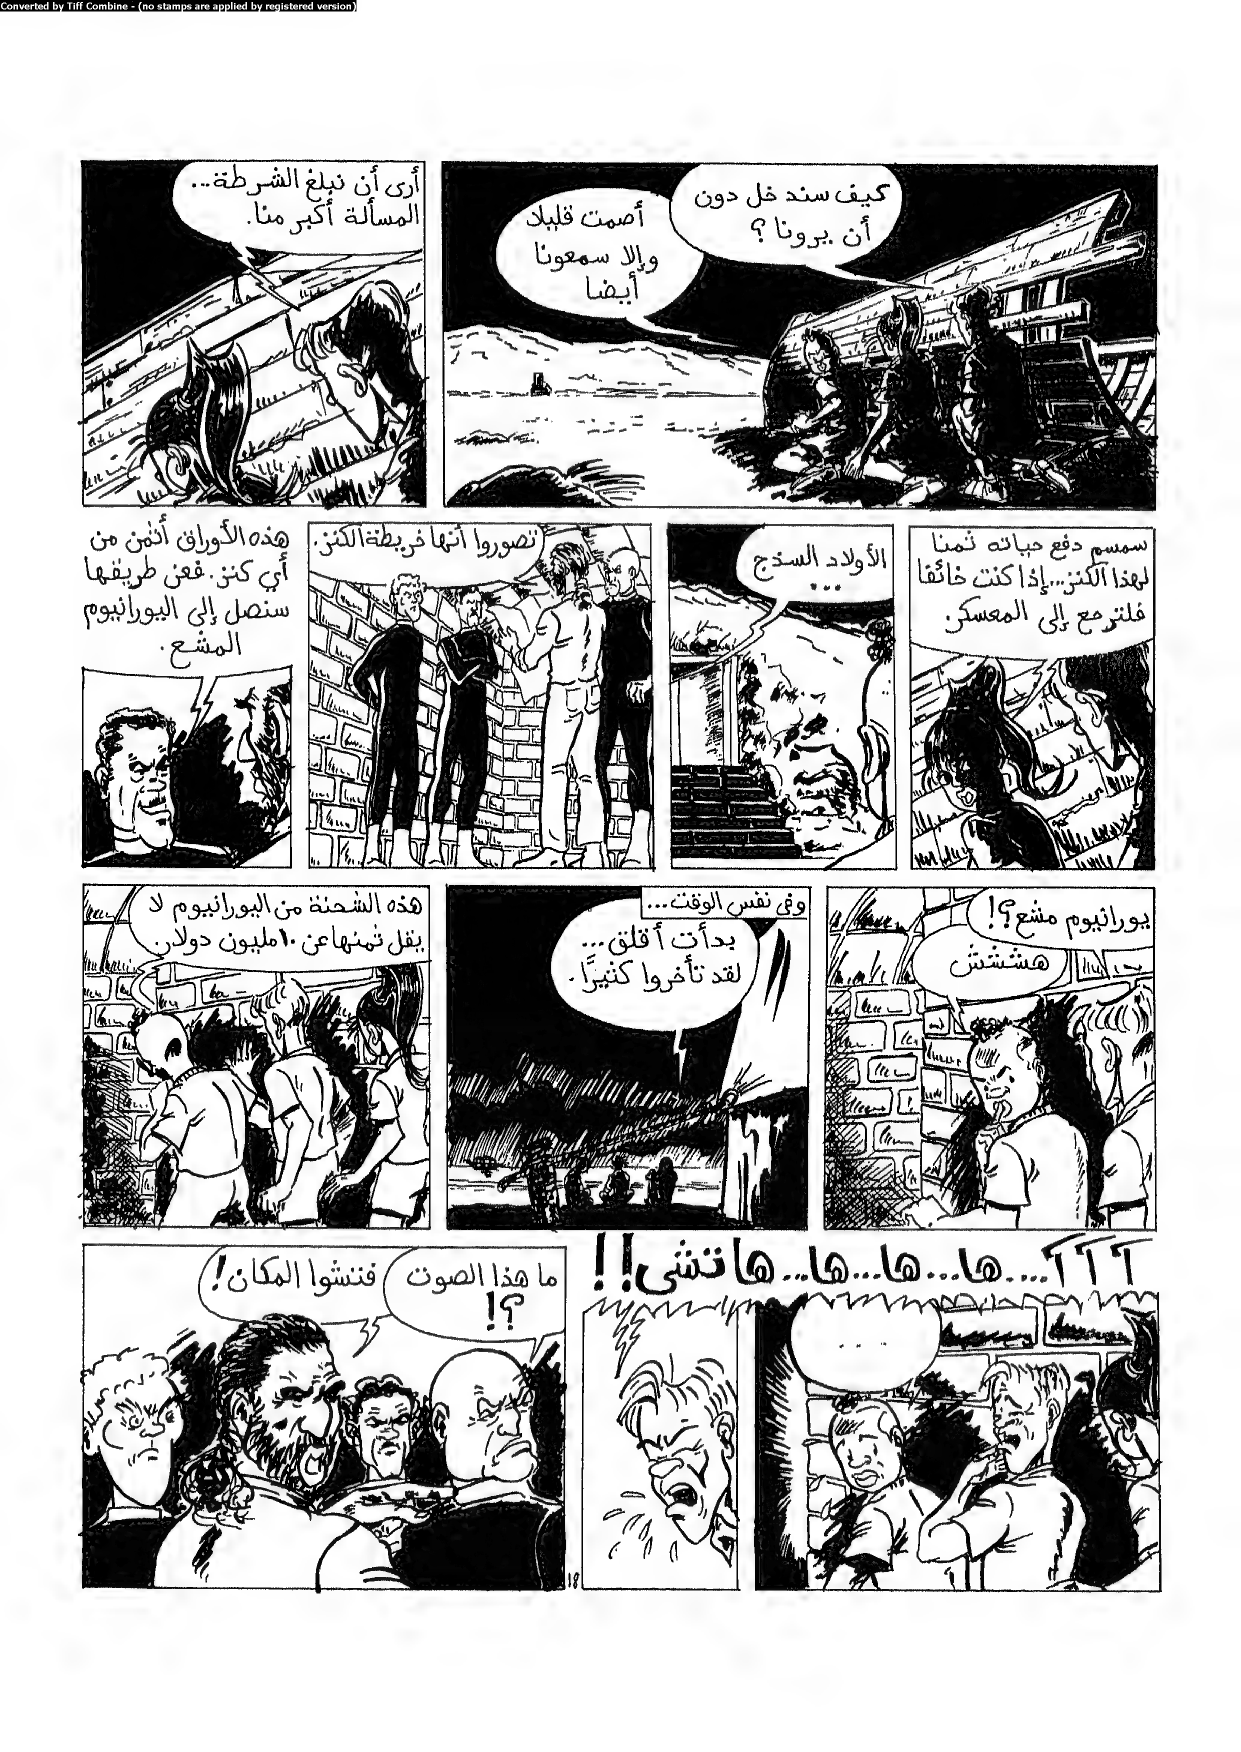 Converted by Tiff Combine - (no stamps are applied by registered version)
كيف سندخل دون
أن يرونا؟
أصمت قليلا
وإلا سمعونا
أيضا
أرى أن نبلغ الشرطة...
المسألة أكبر منا.
سمسم دفع حياته ثمنا
لهذا الكنز...إذا كنت خائفا
فلترجع إلى المعسكر.
الأولاد السذج
...
تصوروا أنها خريطة الكنز.
هذه الأوراق أثمن من
أي كنز. فعن طريقها
سنصل إلى اليورانيوم
المشع.
يورانيوم مشع؟!
هششش
وفى نفس الوقت...
بدأت أقلق...
لقد تأخروا كثيرًا.
هذه الشحنة من اليورانيوم لا
يقل ثمنها عن ١٠ مليون دولار.
آ آ آ....ها...ها...ها...هاتشى!!
...
ما هذا الصوت
؟!
فتشوا المكان!
18